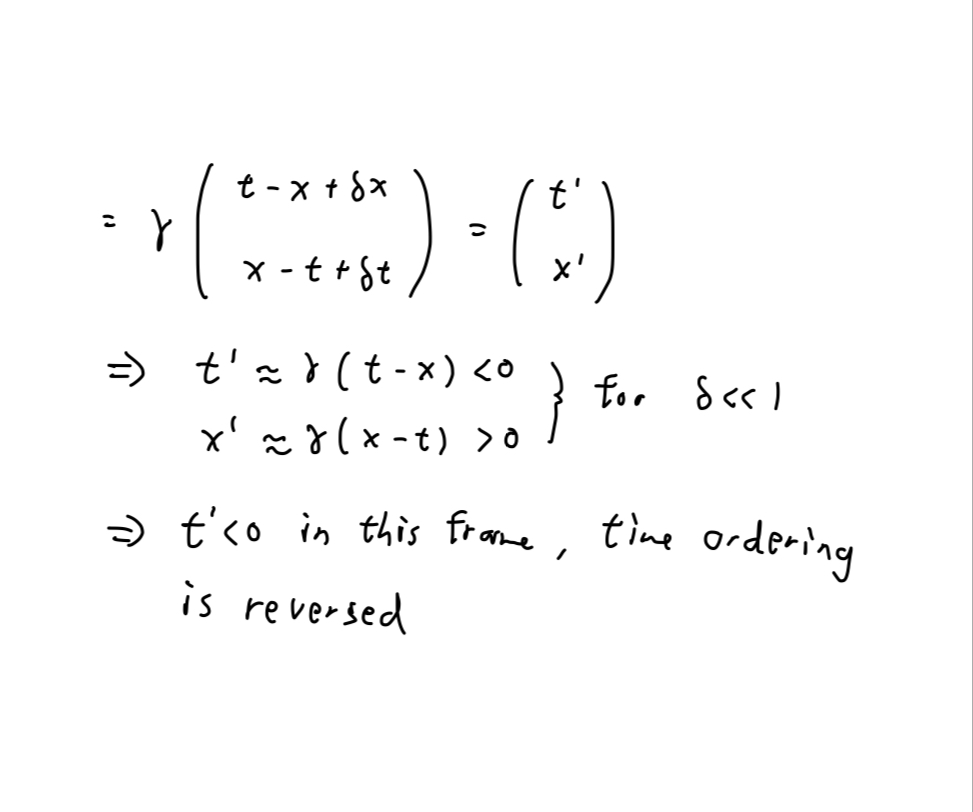 = γ ( t - x + δx ) = ( t' )
( x - t + δt ) ( x' )
⇒ t' ≈ γ ( t - x ) < 0 } for δ << 1
x' ≈ γ ( x - t ) > 0
⇒ t' < 0 in this frame, time ordering
is reversed